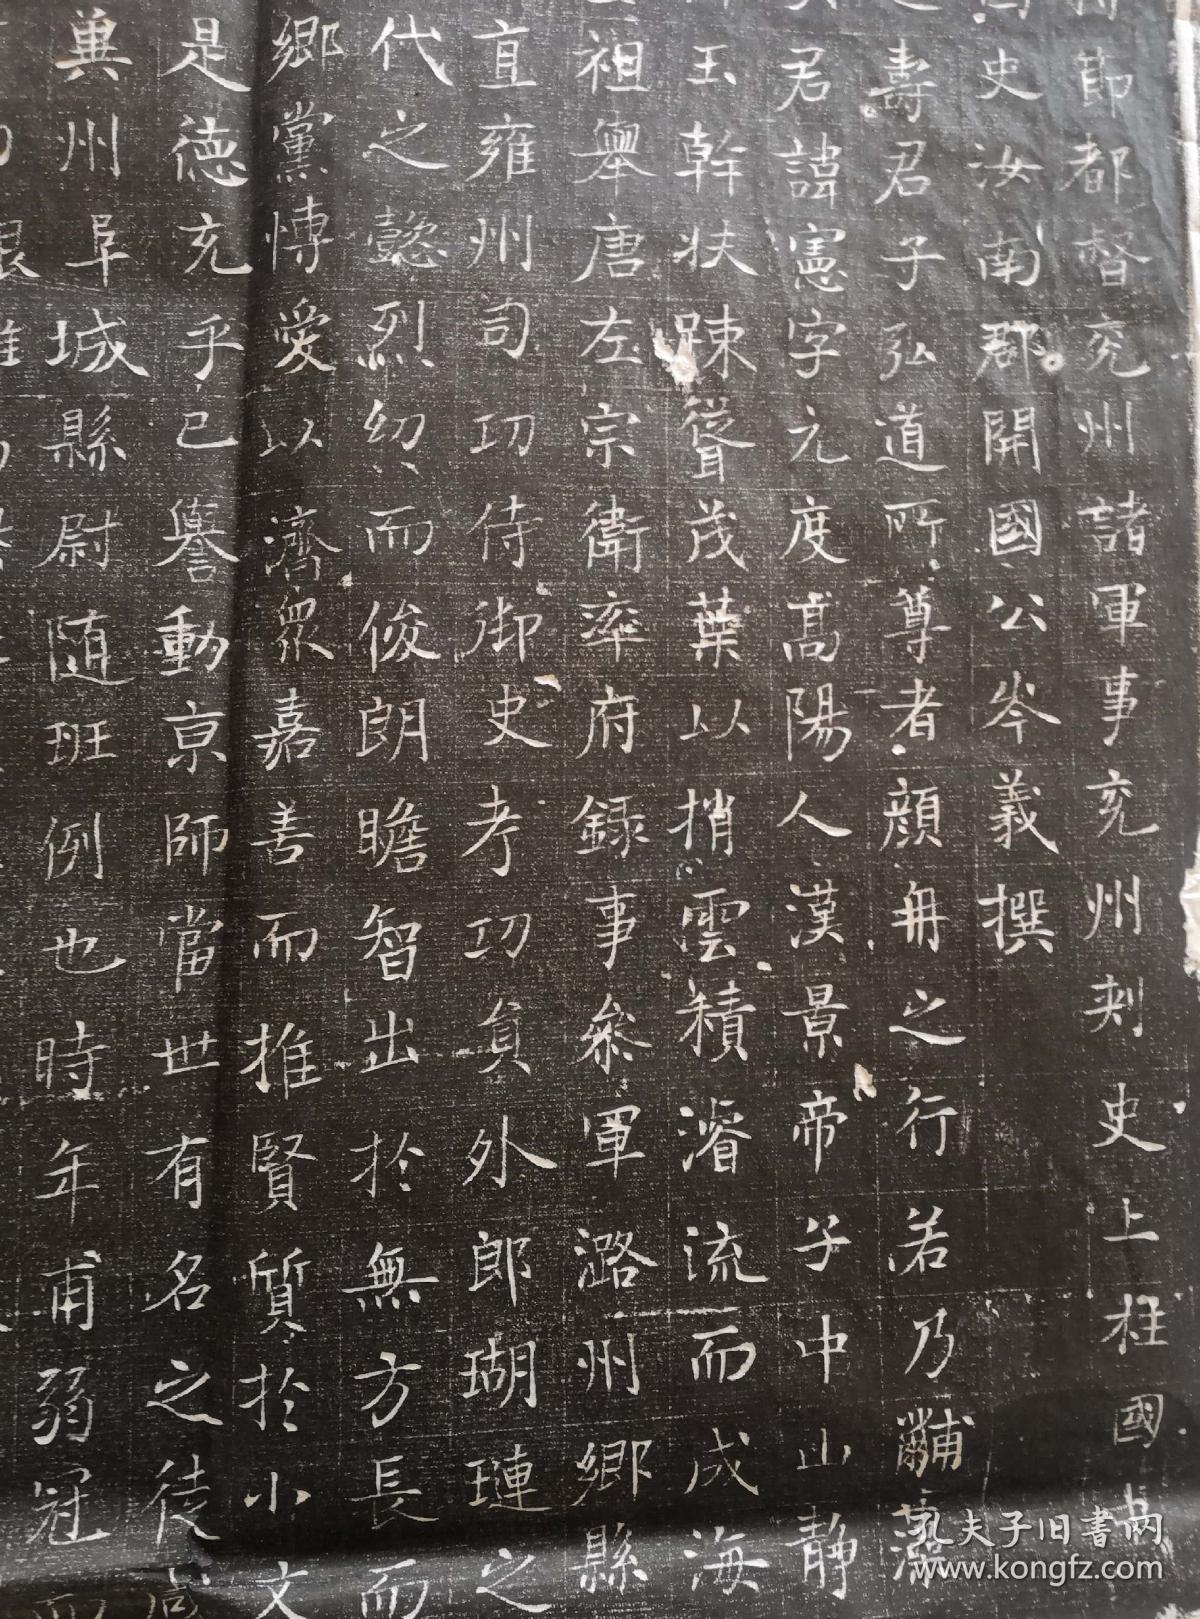 節都督兗州諸軍事兗州刺史上柱國
史汝南郡開國公岑羲撰
壽君子弘道所尊者顔冉之行若乃黼藻
君諱憲字元度高陽人漢景帝子中山静
玉幹狀踈聳茂葉以捎雲積濬流而成海
祖舉唐左宗衛率府録事參軍潞州鄉縣
直雍州司功侍御史考功員外郎瑚璉之
代之懿烈幼而俊朗瞻智出於無方長而
鄉黨愽愛以濟眾嘉善而推賢質於小文
是德充乎己譽動京師當世有名之徒
冀州阜城縣尉随班例也時年甫弱冠
孔夫子旧书网
www.kongfz.com